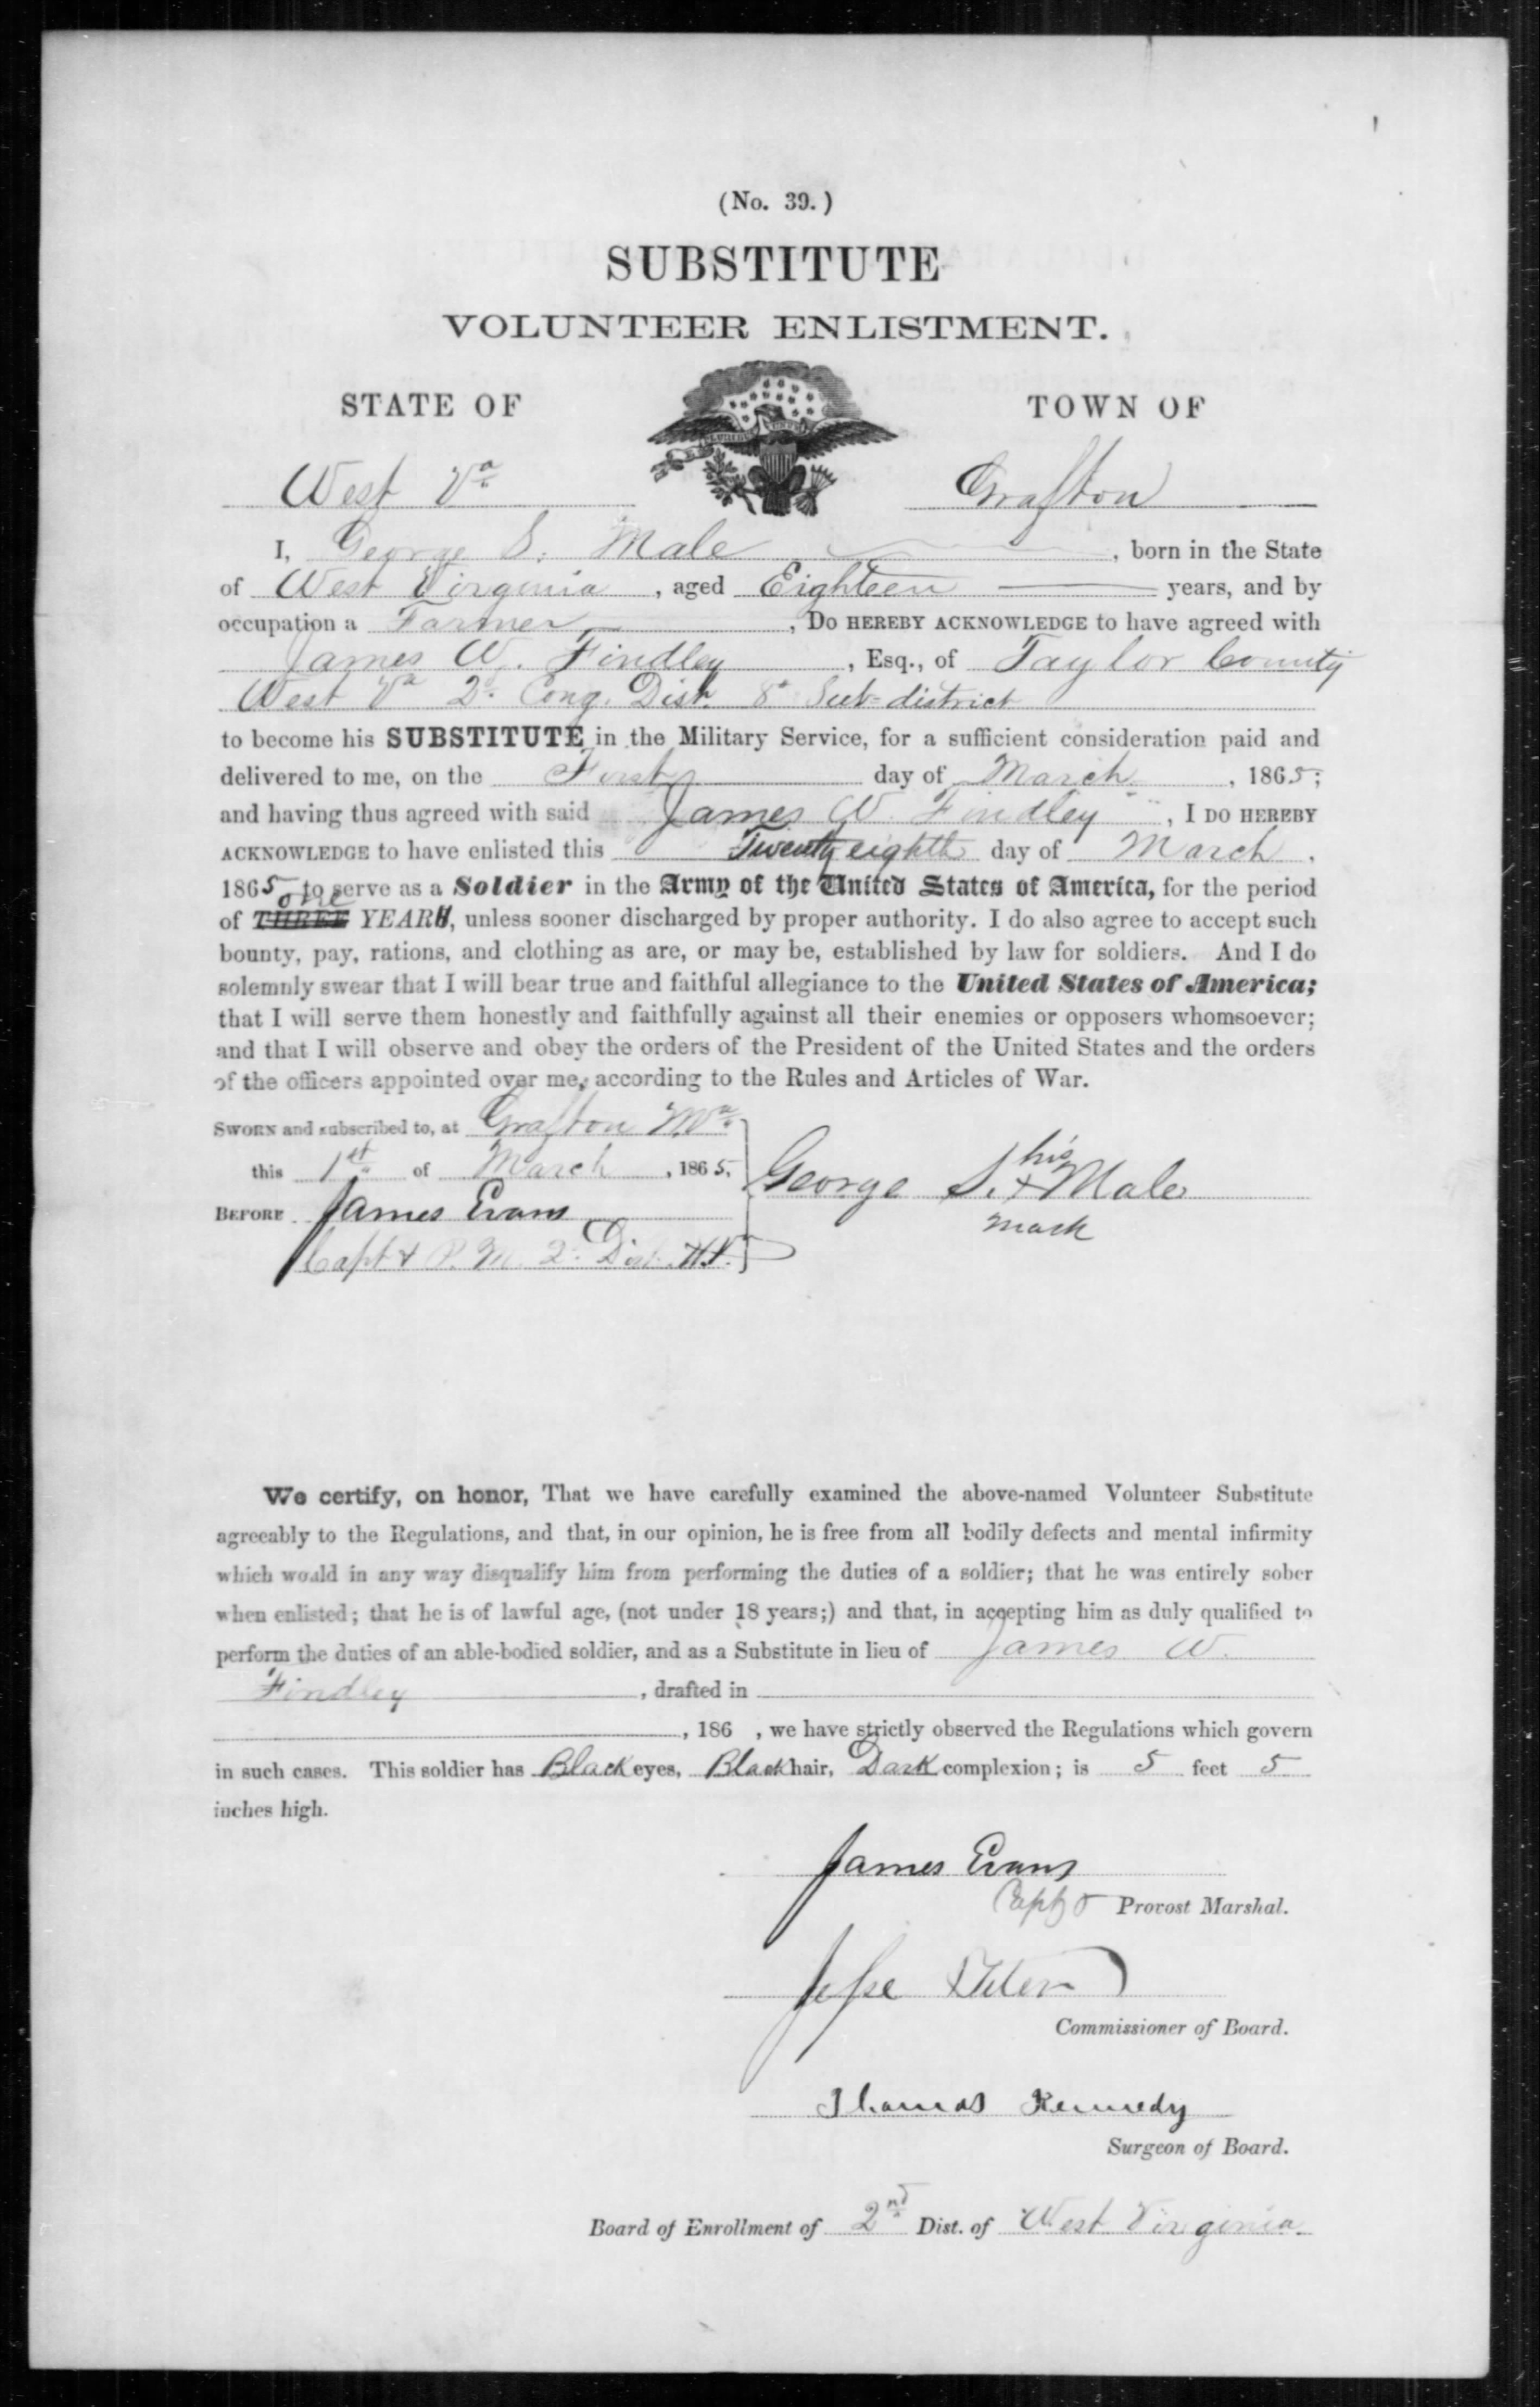 (No. 39.)
SUBSTITUTE
VOLUNTEER ENLISTMENT.
STATE OF TOWN OF
West Va Grafton
I, George S. Male, born in the State
of West Virginia, aged Eighteen years, and by
occupation a Farmer, DO HEREBY ACKNOWLEDGE to have agreed with
James W. Findley, Esq., of Taylor County
West Va 2d Cong. Dist. 8th Sub-district
to become his SUBSTITUTE in the Military Service, for a sufficient consideration paid and
delivered to me, on the First day of March, 1865;
and having thus agreed with said James W. Findley, I DO HEREBY
ACKNOWLEDGE to have enlisted this Twenty eighth day of March,
1865, to serve as a Soldier in the Army of the United States of America, for the period
one
of THREE YEARS, unless sooner discharged by proper authority. I do also agree to accept such
bounty, pay, rations, and clothing as are, or may be, established by law for soldiers. And I do
solemnly swear that I will bear true and faithful allegiance to the United States of America;
that I will serve them honestly and faithfully against all their enemies or opposers whomsoever;
and that I will observe and obey the orders of the President of the United States and the orders
of the officers appointed over me, according to the Rules and Articles of War.
SWORN and subscribed to, at Grafton W.Va
this 1st of March, 1865,
his
George S. x Male
mark
BEFORE James Evans
Capt & P.M. 2d Dist. W.V.
We certify, on honor, That we have carefully examined the above-named Volunteer Substitute
agreeably to the Regulations, and that, in our opinion, he is free from all bodily defects and mental infirmity
which would in any way disqualify him from performing the duties of a soldier; that he was entirely sober
when enlisted; that he is of lawful age, (not under 18 years;) and that, in accepting him as duly qualified to
perform the duties of an able-bodied soldier, and as a Substitute in lieu of James W.
Findley, drafted in
, 186 , we have strictly observed the Regulations which govern
in such cases. This soldier has Black eyes, Black hair, Dark complexion; is 5 feet 5
inches high.
James Evans
Capt & Provost Marshal.
Jesse
Commissioner of Board.
Thomas Kennedy
Surgeon of Board.
Board of Enrollment of 2nd Dist. of West Virginia.